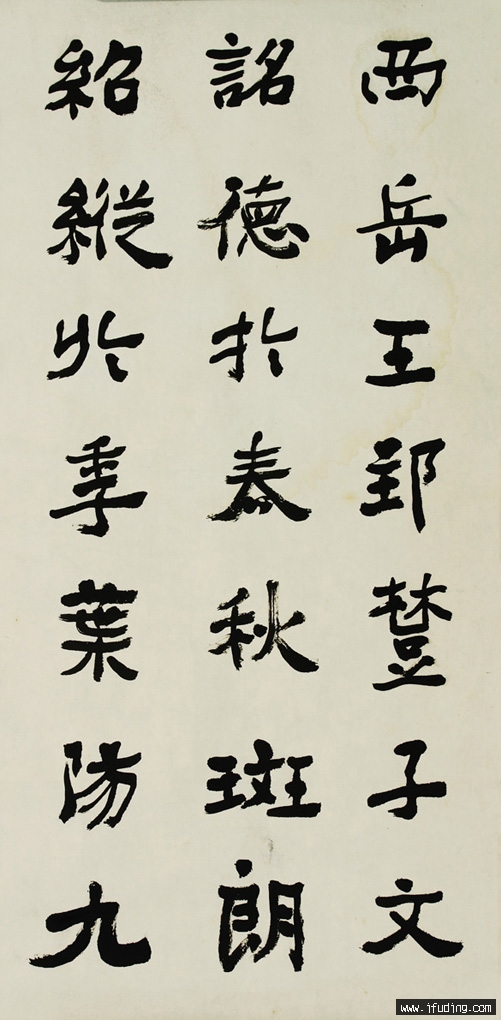 西岳王郢楚子文
詺德於春秋斑朗
紹縱於季葉陽九
www.ifuding.com